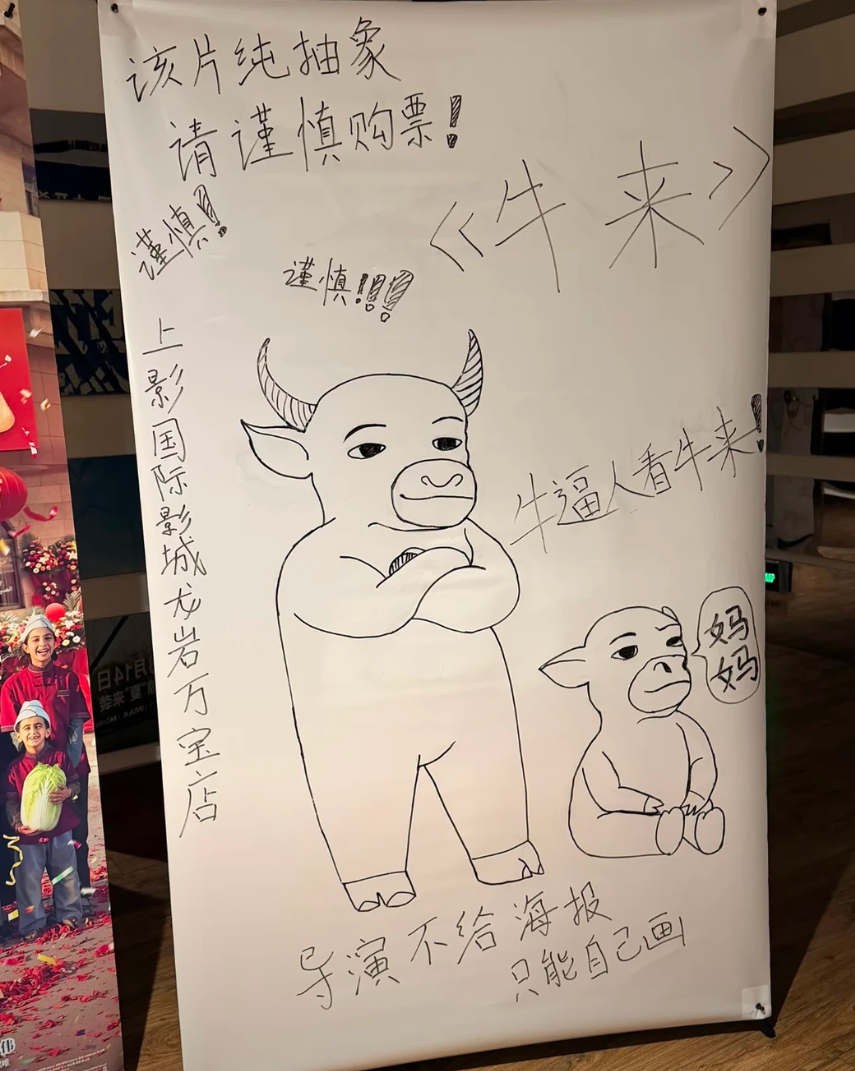 该片纯抽象
请谨慎购票!
谨慎!
谨慎!!!
《牛来》
上影国际影城龙岩万宝店
牛逼人看牛来!
妈
妈
导演不给海报
只能自己画